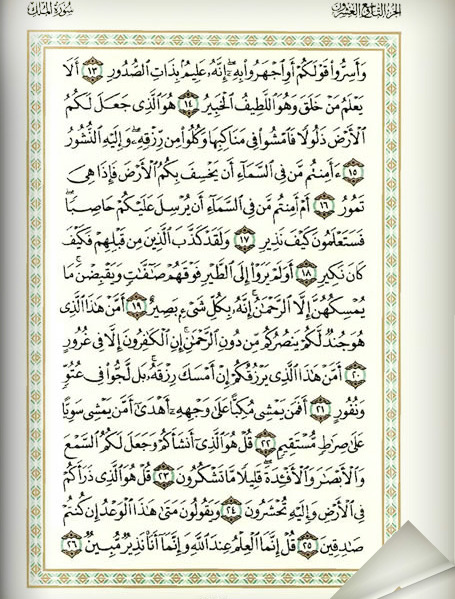 سُورَةُ المُلْكِ
الجُزْءُ التَّاسِعُ وَالعِشْرُونَ
وَأَسِرُّوا۟ قَوْلَكُمْ أَوِ ٱجْهَرُوا۟ بِهِۦٓ إِنَّهُۥ عَلِيمٌۢ بِذَاتِ ٱلصُّدُورِ ١٣ أَلَا
يَعْلَمُ مَنْ خَلَقَ وَهُوَ ٱللَّطِيفُ ٱلْخَبِيرُ ١٤ هُوَ ٱلَّذِى جَعَلَ لَكُمُ
ٱلْأَرْضَ ذَلُولًا فَٱمْشُوا۟ فِى مَنَاكِبِهَا وَكُلُوا۟ مِن رِّزْقِهِۦ وَإِلَيْهِ ٱلنُّشُورُ
١٥ ءَأَمِنتُم مَّن فِى ٱلسَّمَآءِ أَن يَخْسِفَ بِكُمُ ٱلْأَرْضَ فَإِذَا هِىَ
تَمُورُ ١٦ أَمْ أَمِنتُم مَّن فِى ٱلسَّمَآءِ أَن يُرْسِلَ عَلَيْكُمْ حَاصِبًا
فَسَتَعْلَمُونَ كَيْفَ نَذِيرِ ١٧ وَلَقَدْ كَذَّبَ ٱلَّذِينَ مِن قَبْلِهِمْ فَكَيْفَ
كَانَ نَكِيرِ ١٨ أَوَلَمْ يَرَوْا۟ إِلَى ٱلطَّيْرِ فَوْقَهُمْ صَٰٓفَّٰتٍ وَيَقْبِضْنَ مَا
يُمْسِكُهُنَّ إِلَّا ٱلرَّحْمَٰنُ إِنَّهُۥ بِكُلِّ شَىْءٍۭ بَصِيرٌ ١٩ أَمَّنْ هَٰذَا ٱلَّذِى
هُوَ جُندٌ لَّكُمْ يَنصُرُكُم مِّن دُونِ ٱلرَّحْمَٰنِ إِنِ ٱلْكَٰفِرُونَ إِلَّا فِى غُرُورٍ
٢٠ أَمَّنْ هَٰذَا ٱلَّذِى يَرْزُقُكُمْ إِنْ أَمْسَكَ رِزْقَهُۥ بَل لَّجُّوا۟ فِى عُتُوٍّ
وَنُفُورٍ ٢١ أَفَمَن يَمْشِى مُكِبًّا عَلَىٰ وَجْهِهِۦٓ أَهْدَىٰٓ أَمَّن يَمْشِى سَوِيًّا
عَلَىٰ صِرَٰطٍ مُّسْتَقِيمٍ ٢٢ قُلْ هُوَ ٱلَّذِىٓ أَنشَأَكُمْ وَجَعَلَ لَكُمُ ٱلسَّمْعَ
وَٱلْأَبْصَٰرَ وَٱلْأَفْـِٔدَةَ قَلِيلًا مَّا تَشْكُرُونَ ٢٣ قُلْ هُوَ ٱلَّذِى ذَرَأَكُمْ
فِى ٱلْأَرْضِ وَإِلَيْهِ تُحْشَرُونَ ٢٤ وَيَقُولُونَ مَتَىٰ هَٰذَا ٱلْوَعْدُ إِن كُنتُمْ
صَٰدِقِينَ ٢٥ قُلْ إِنَّمَا ٱلْعِلْمُ عِندَ ٱللَّهِ وَإِنَّمَآ أَنَا۠ نَذِيرٌ مُّبِينٌ ٢٦